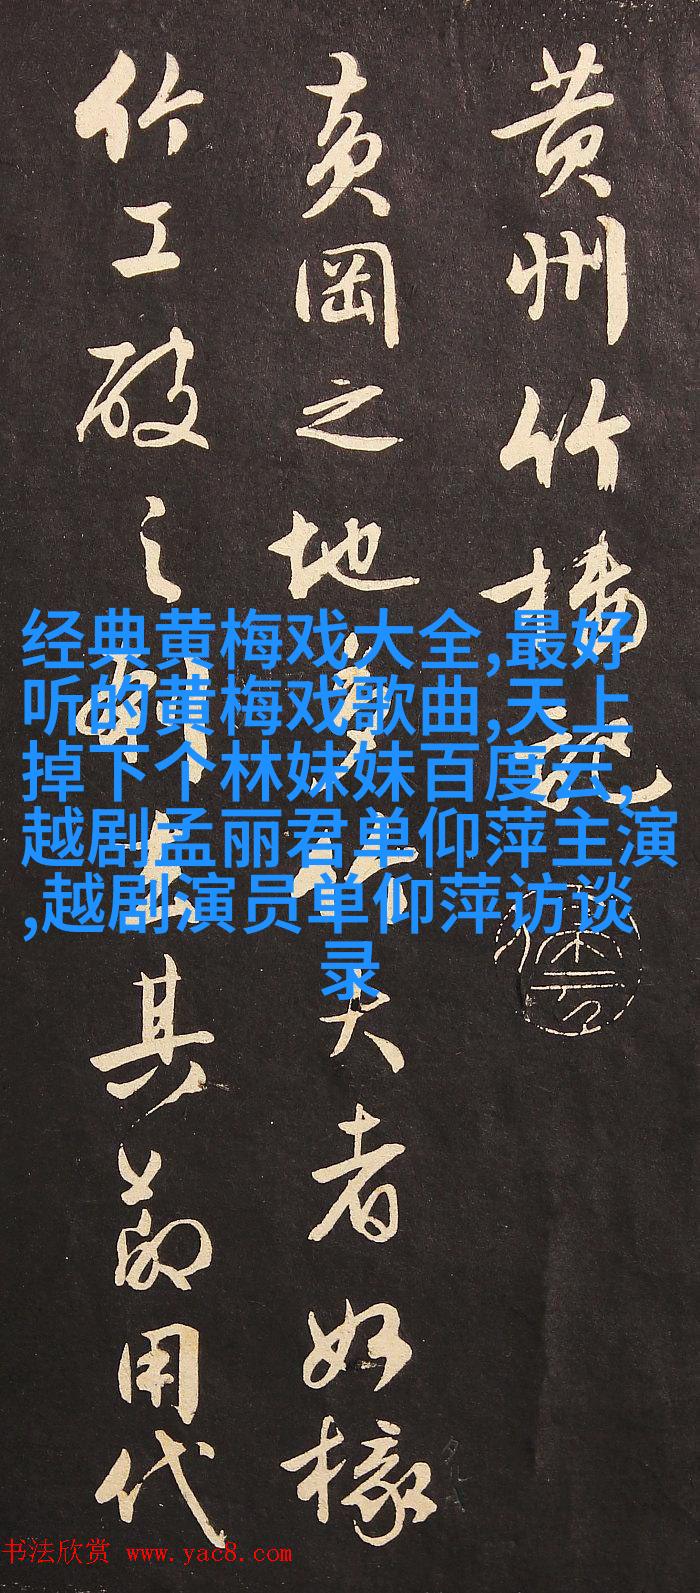 黄州竹樓記
黄岡之地多竹大者如椽
竹工破之刳去其節用代
经典黄梅戏大全,最好
听的黄梅戏歌曲,天上
掉下个林妹妹百度云,
越剧孟丽君单仰萍主演
,越剧演员单仰萍访谈
录
书法欣赏 www.yac8.com